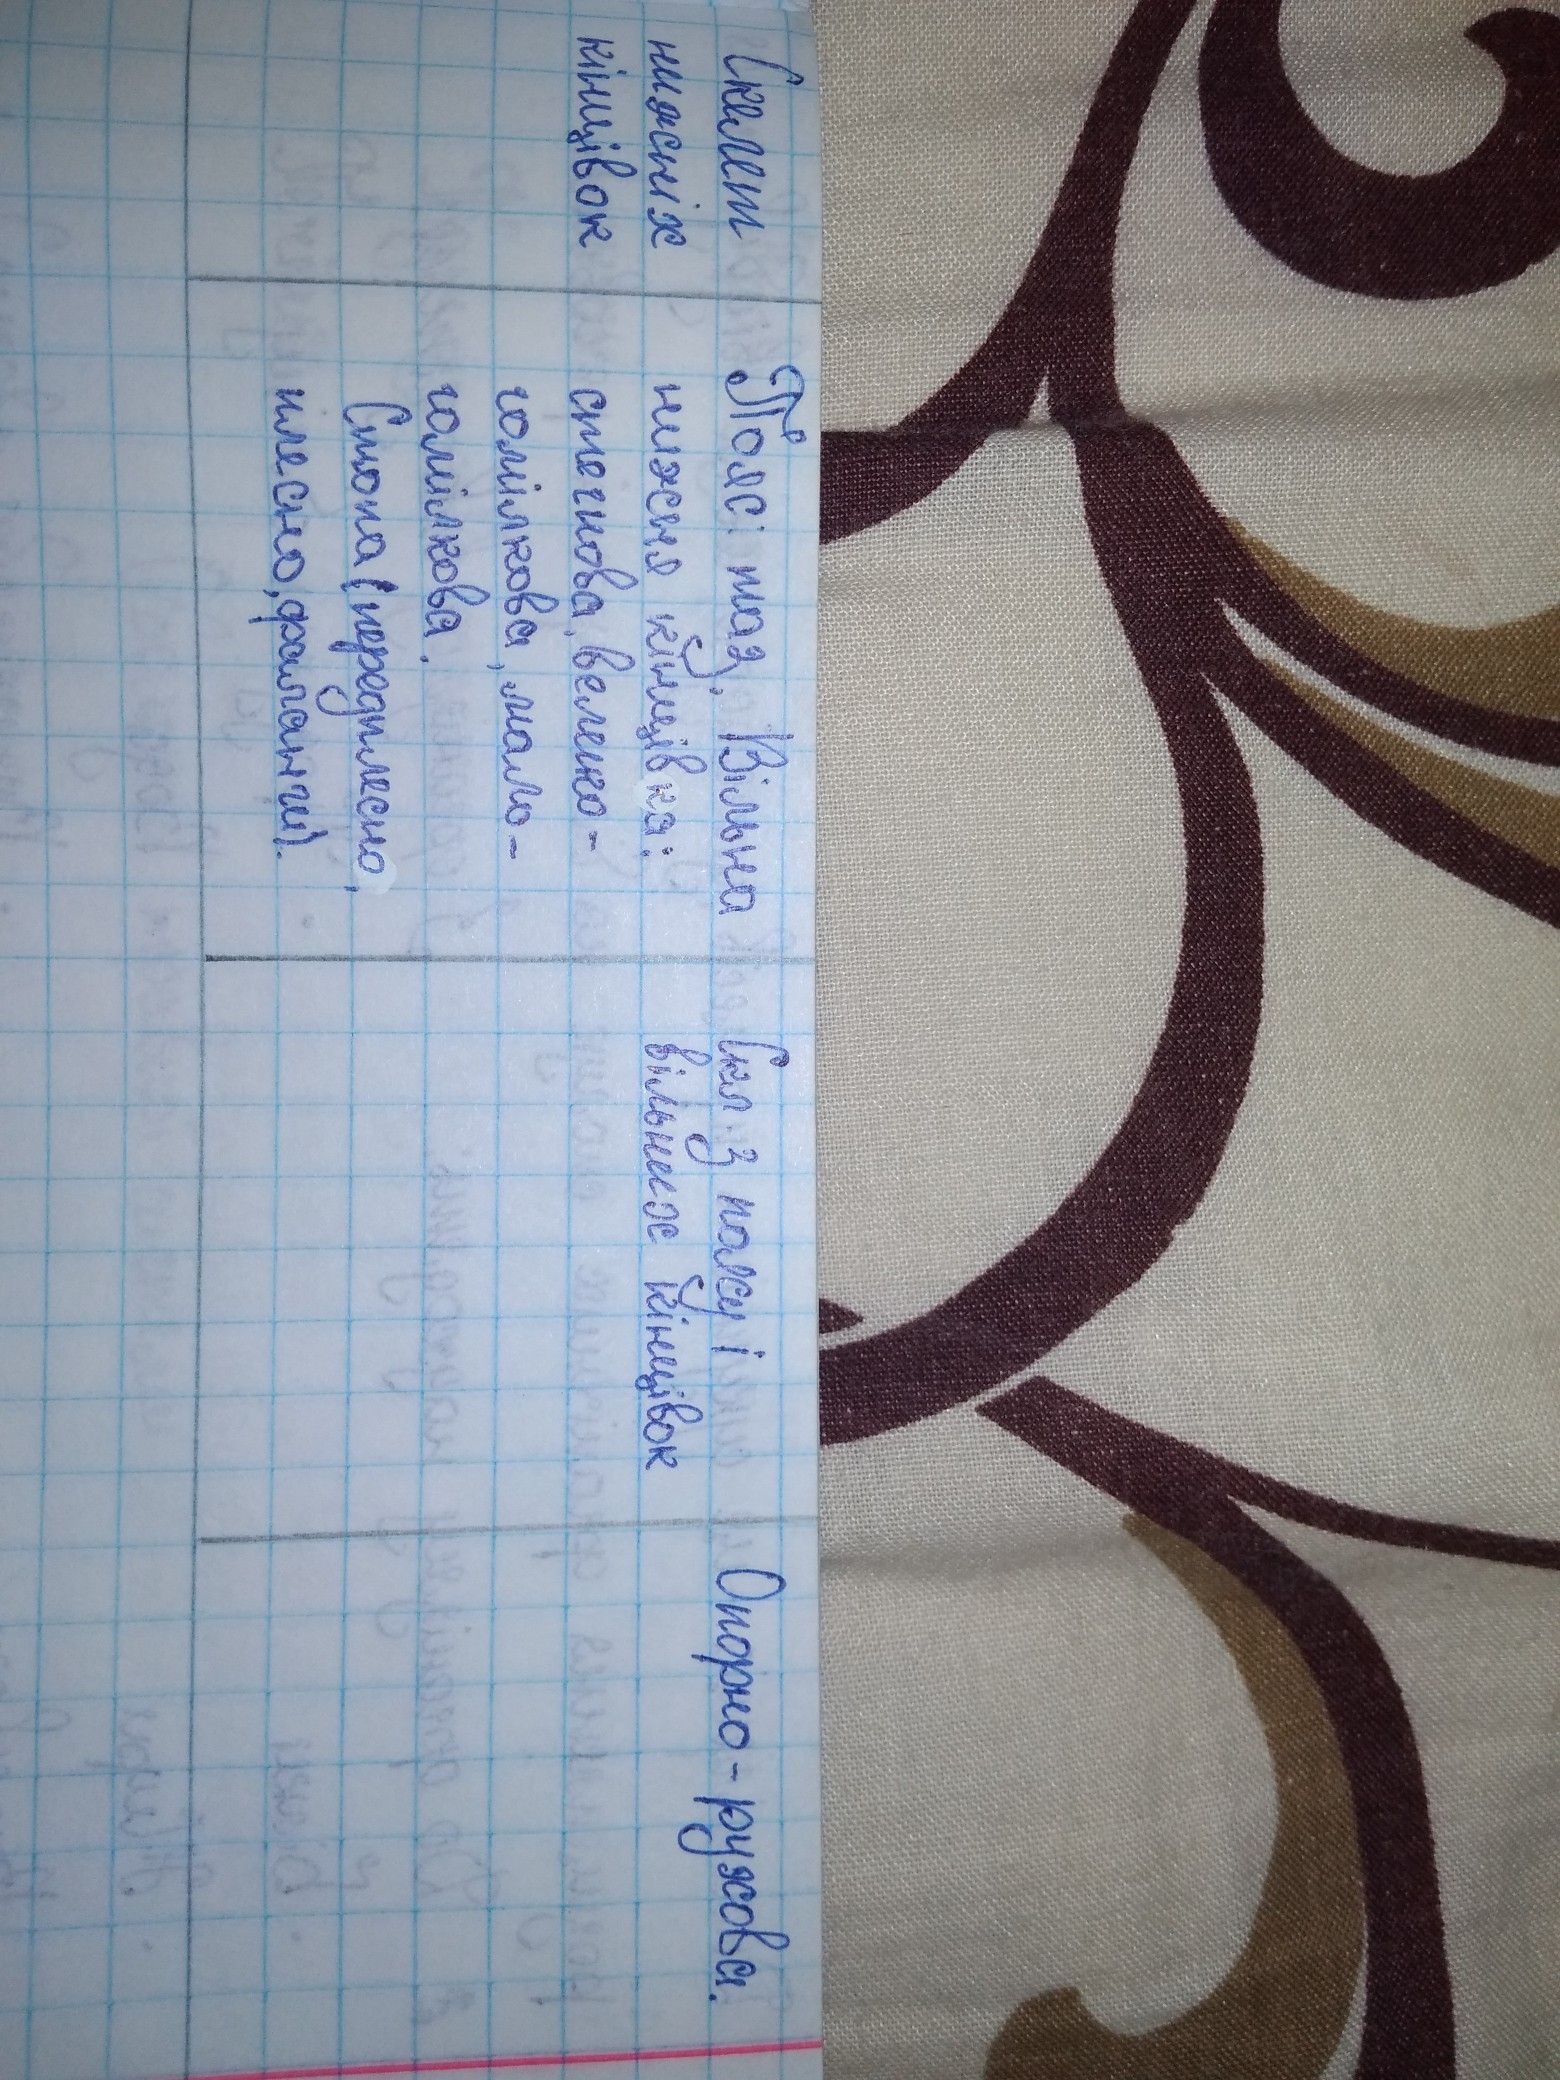 Скелет
нижніх
кінцівок
Пояс: таз. Вільна
нижня кінцівка:
стегнова, велико-
голілкова, мало-
голілкова.
Стопа (передплесно,
плесно, фаланги).
Скл. з поясу і
вільних кінцівок
Опорно-рухова.